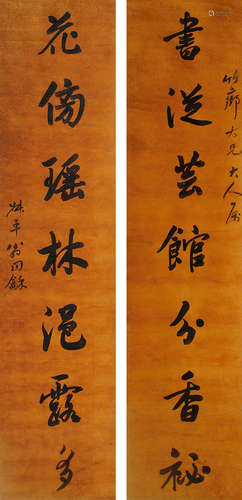 書從芸館分香秘
竹大兄大人属
花傍瑶林浥露多
叔平翁同龢